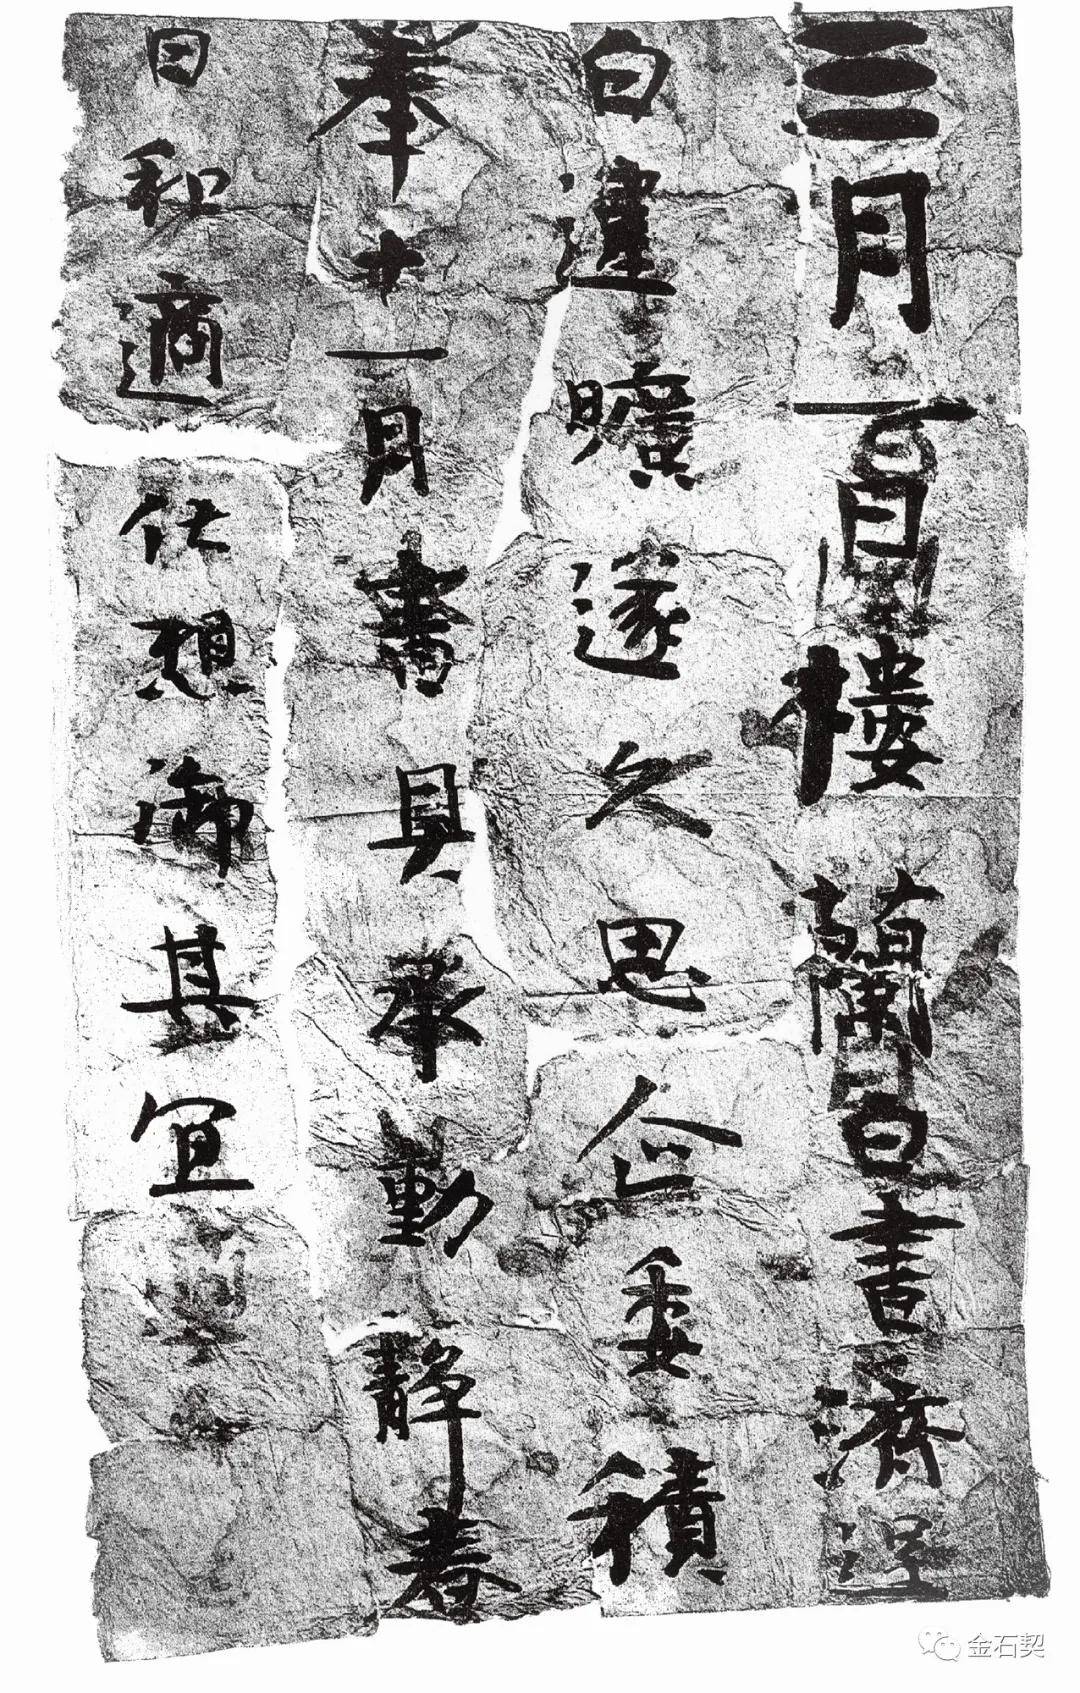 三月一日樓蘭白書濟逞
白違曠遂久思企委積
奉十一月書具承動靜春
日和適伏想御其宜
金石契